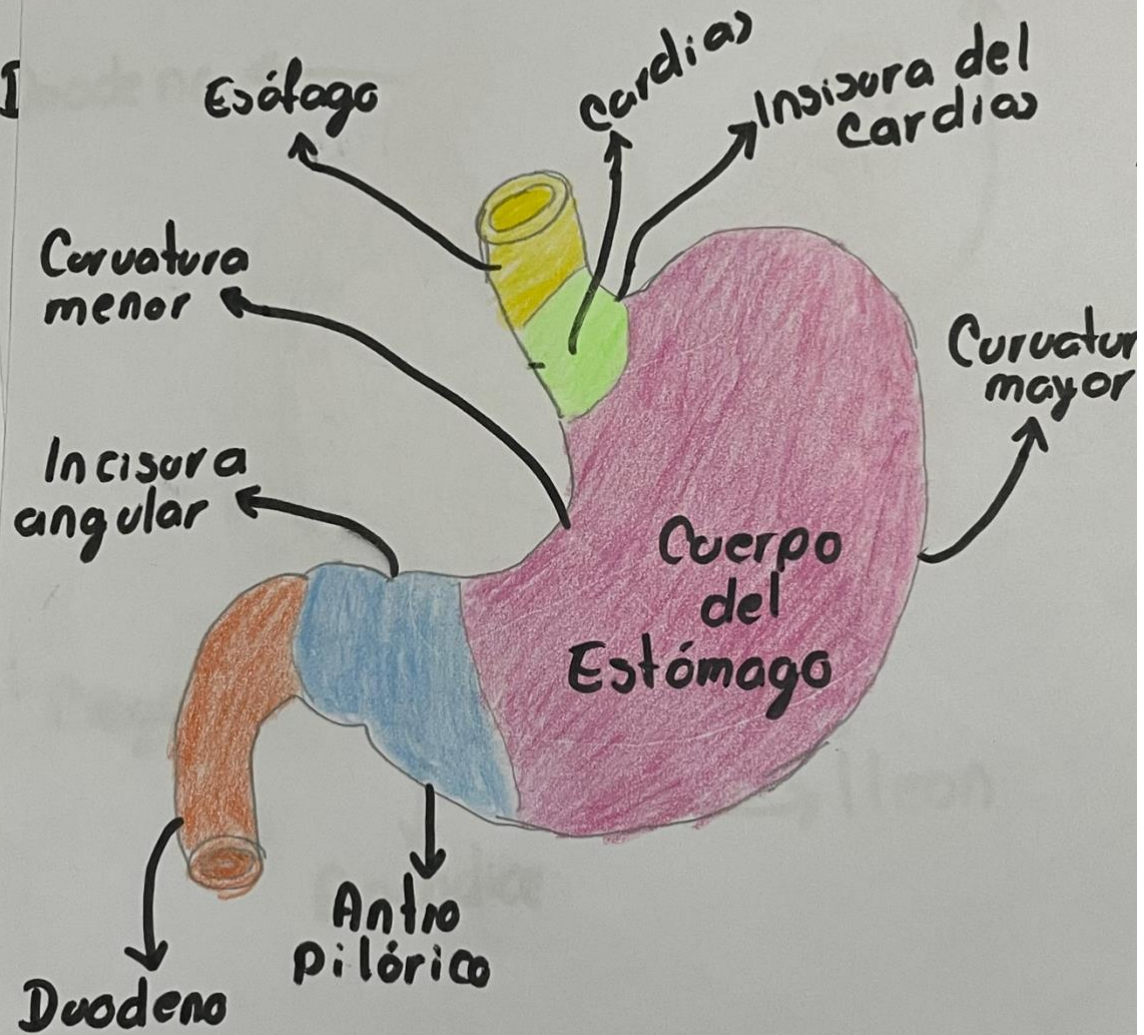 Esófago
Cardias
Insisura del
Cardias
Curvatura
menor
Curvatur
mayor
Incisura
angular
Cuerpo
del
Estómago
Antro
Pilórico
Duodeno